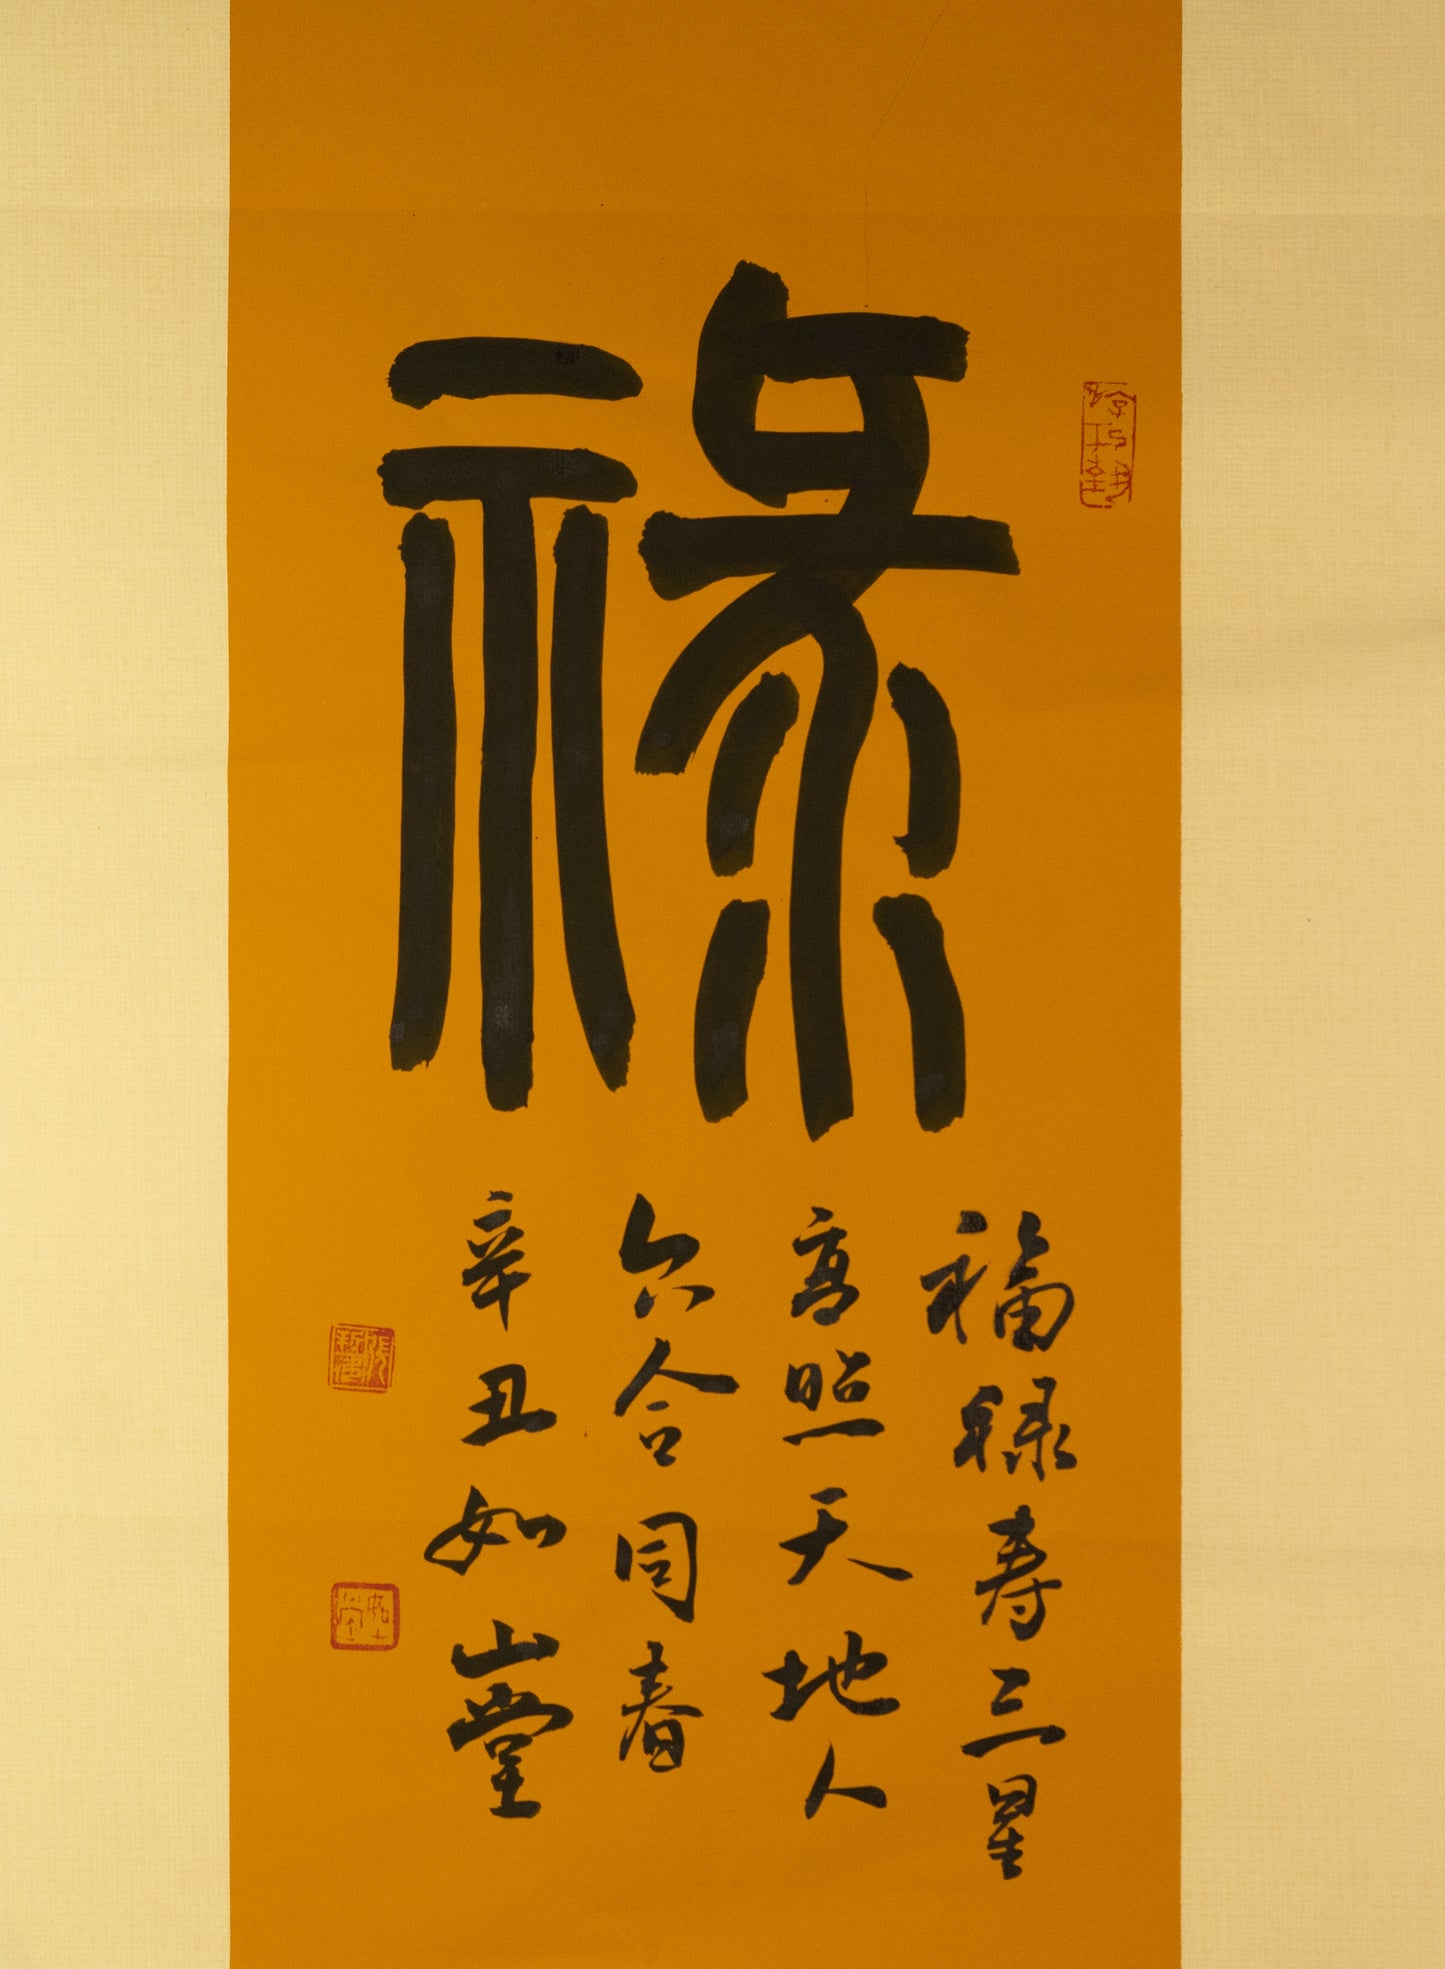 祿
福禄寿三星
高照天地人
六合同春
辛丑如山堂